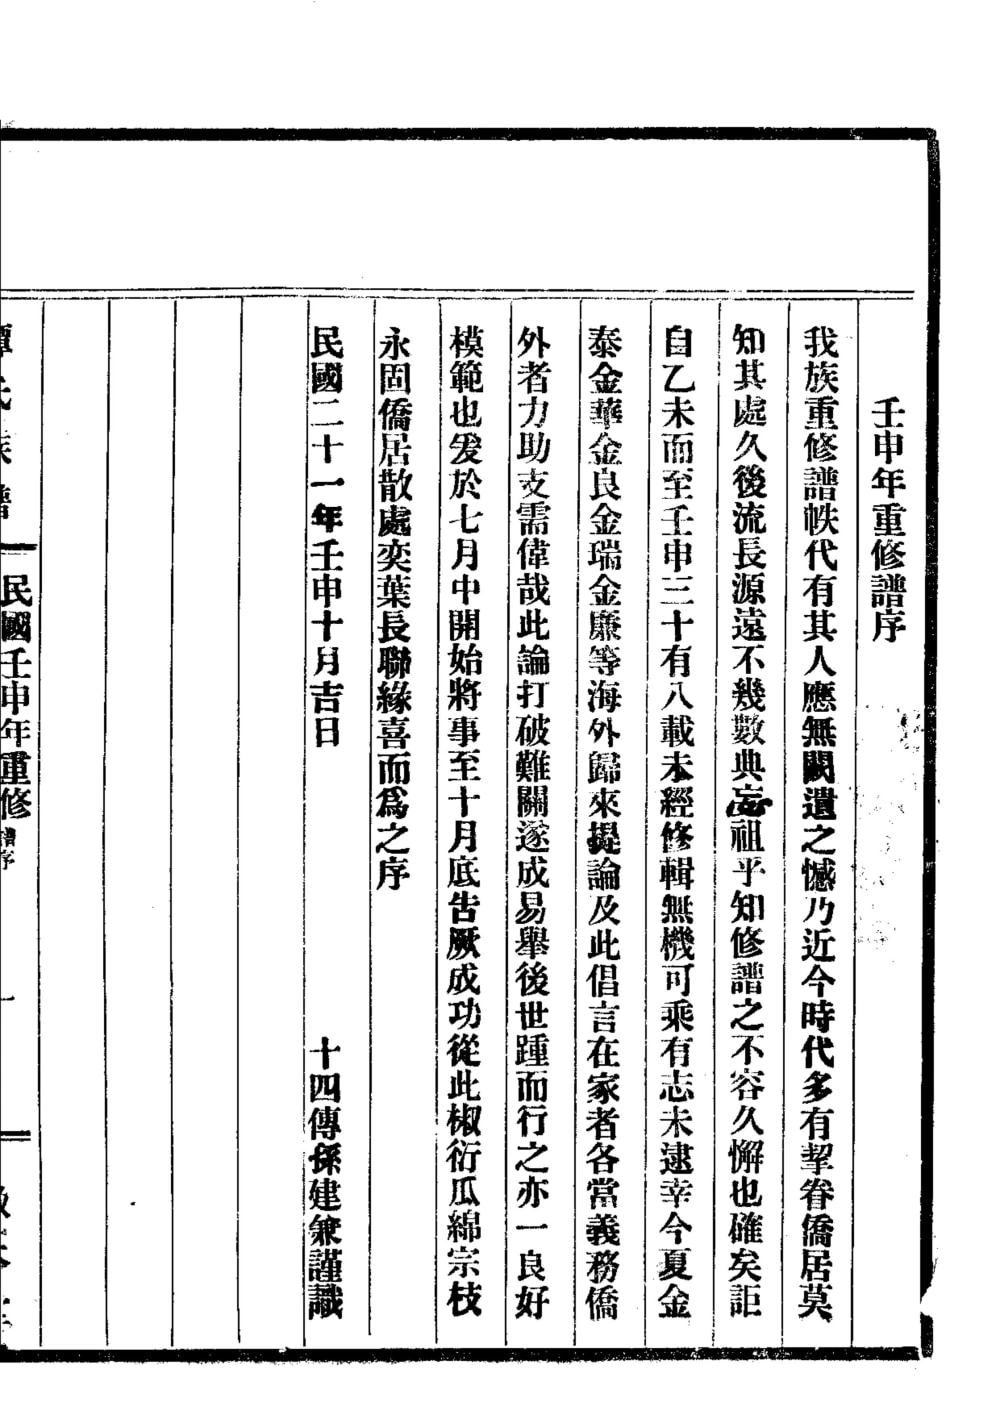 壬申年重修譜序
我族重修譜帙代有其人應無闕遺之憾乃近今時代多有挈眷僑居莫
知其處久後流長源遠不幾數典忘祖乎知修譜之不容久懈也確矣詎
自乙未而至壬申三十有八載未經修輯無機可乘有志未逮幸今夏金
泰金華金良金瑞金廉等海外歸來提論及此倡言在家者各當義務僑
外者力助支需偉哉此論打破難關遂成易舉後世踵而行之亦一良好
模範也爰於七月中開始將事至十月底告厥成功從此椒衍瓜綿宗枝
永固僑居散處奕葉長聯緣喜而為之序
民國二十一年壬申十月吉日　十四傳孫建兼謹識
譚氏族譜　民國壬申年重修　譜序　一